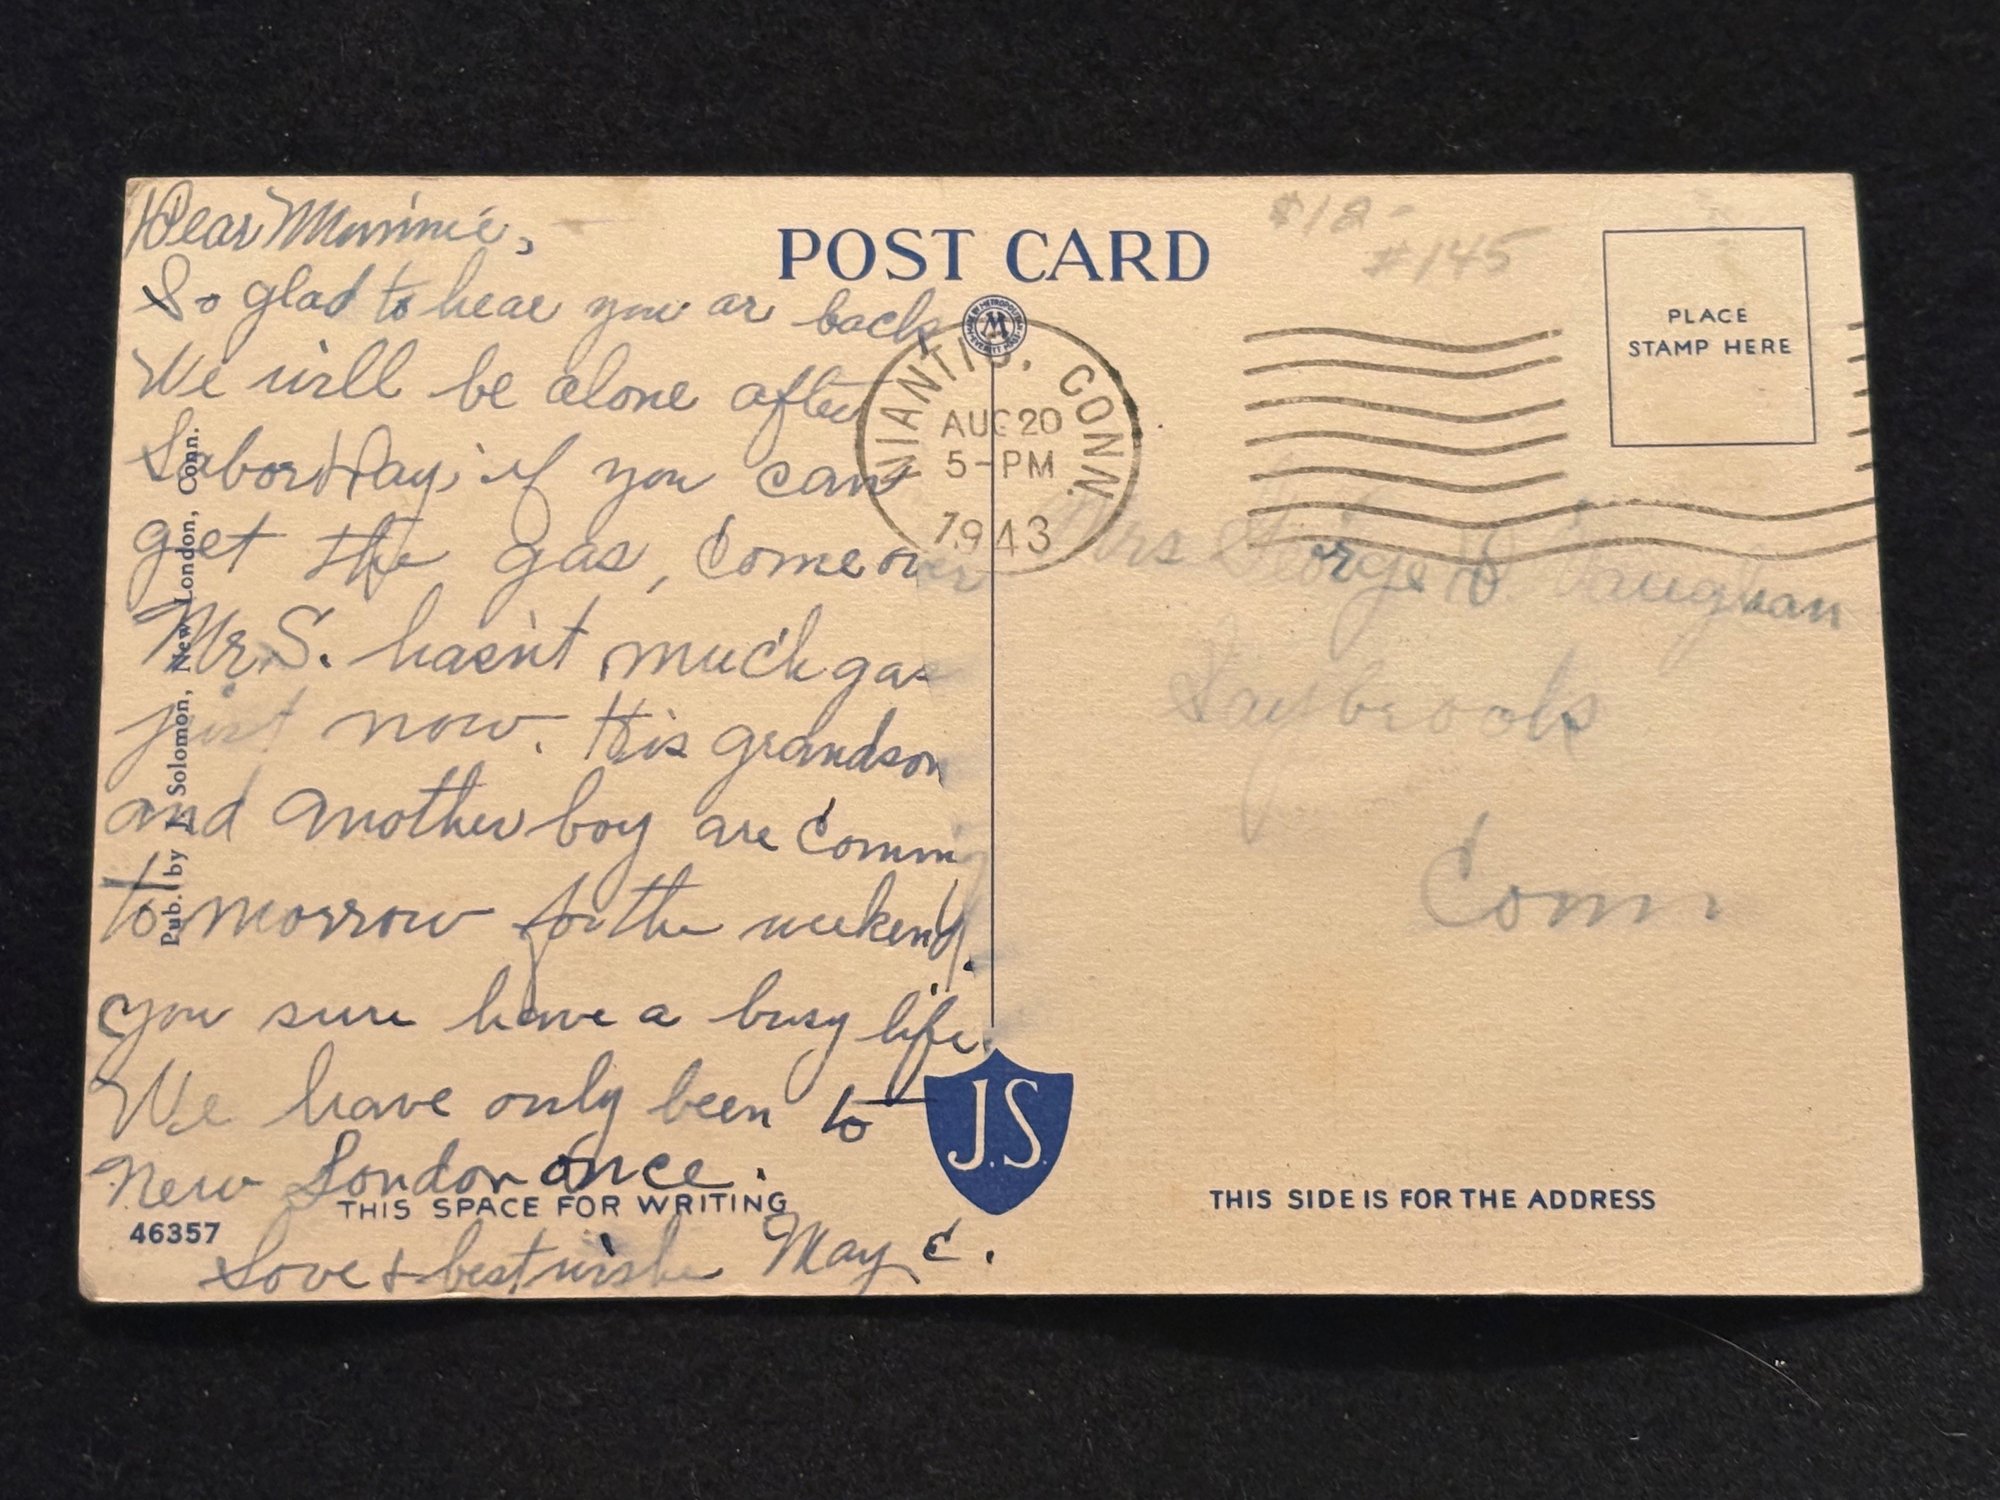 Dear Minnie,
So glad to hear you ar back
We will be alone after
Labor Day, if you can
get the gas, come over
Mr. S. hasn't much gas
just now. His grandson
and another boy are coming
tomorrow for the weekend.
you sure have a busy life.
We have only been to
New London once.
Love & best wishes May C.
THIS SPACE FOR WRITING
46357
Pub. by J. Solomon, New London, Conn.
POST CARD
MADE BY METROPOLITAN
M
EVERETT MASS.
NIANTIC, CONN.
AUG 20
5-PM
1943
J.S.
$12-
#145
PLACE
STAMP HERE
Mrs George D. Vaughan
Saybrook
Conn
THIS SIDE IS FOR THE ADDRESS